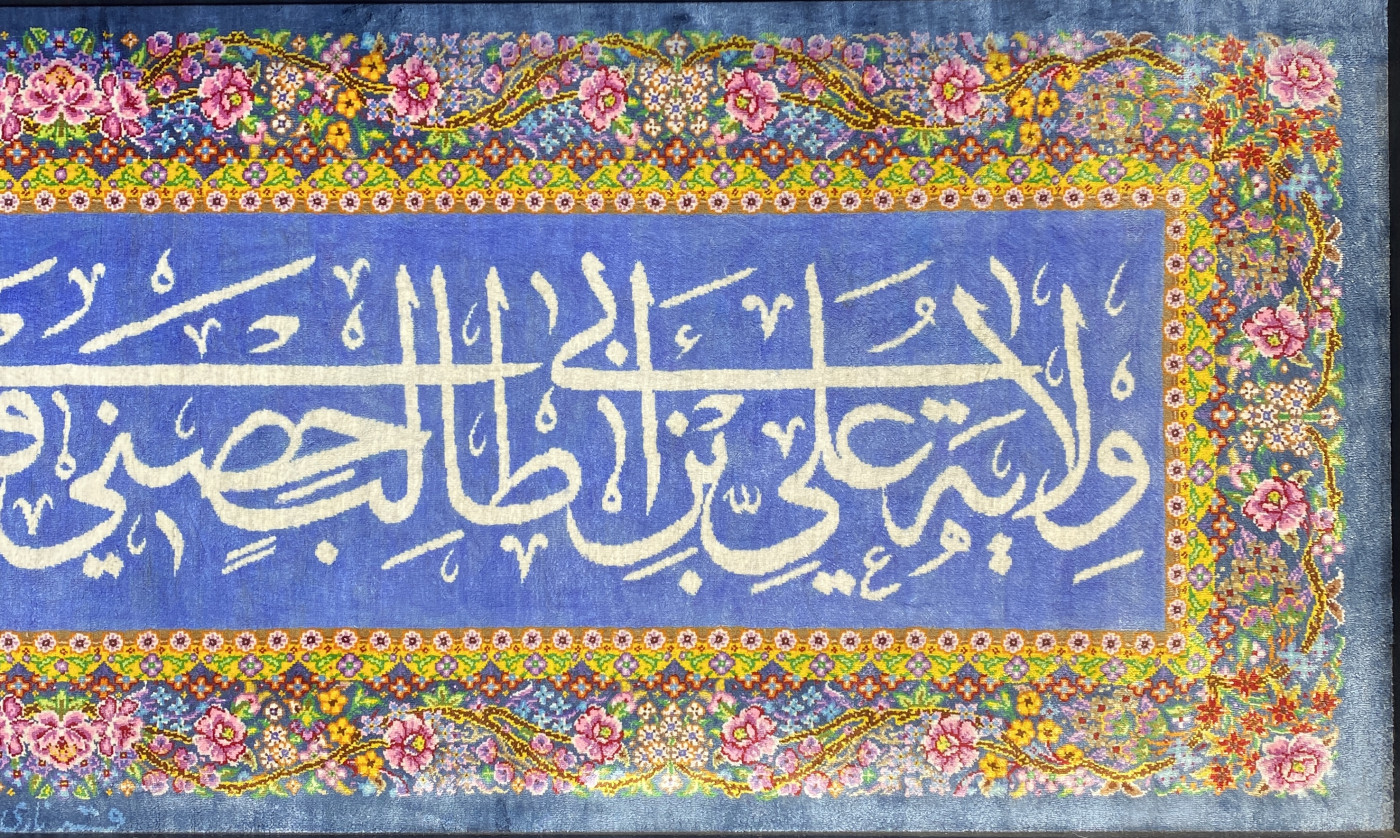 ولاية علي بن ابي طالب حصني